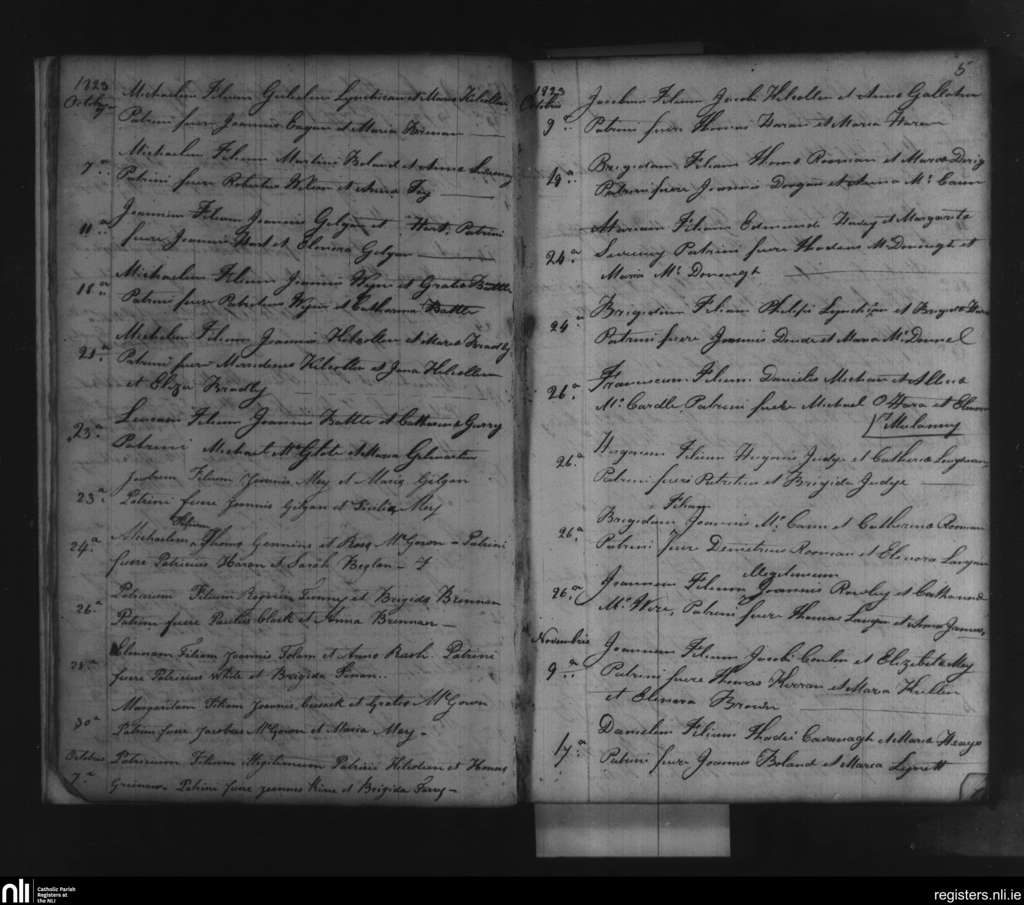 1823
October
Michaelem Filium Gulielmi Lynchican et Maria Kilcollen
Patrini fuere Joannis Eagan et Maria Brennan
7.a
Michaelem Filium Martini Boland et Anna Sweeny
Patrini fuere Robertus Wilson et Anna Fay
11.a
Joannem Filium Joannis Gilgan et Hart, Patrini
fuere Joannis Hart et Elenora Gilgan
18.a
Michaelem Filium Joannis Wynn et Gratia Battle
Patrini fuere Patricius Wynn et Catharina Battle
21.a
Michaelem Filium Joannis Kilcollen et Maria Bradly
Patrini fuere Kilcollen et Jana Kilcollen
et Eliza Bradly
23.a
Filium Joannis Battle et Catharina Garry
Patrini Michael et Maria Gilmartin
23.a
Jacobum Filium Joannis Mey et Maria Gilgan
Patrini fuere Joannis Gilgan et Sicilia Mey
24.a
Michaelem Filium Thoma Jennins et Rosa McGowan - Patrini
fuere Patricius Haran et Sarah Beglan -
26.a
Patricium Filium Finny et Brigida Brennan
Patrini fuere Clark et Anna Brennan -
28.a
Filiam Joannis Tolan et Anna Patrini
fuere Patricius White et Brigida Finan..
30.a
Margaritam Filiam Joannis Cusack et Gratia McGown
Patrini fuere Jacobus McGown et Maria Mey -
Octobris
7.a
Patricium Filium illigitimum Patricii et
Patrini fuere Joannes et Brigida -
5
1823
Octobris
9.a
Jacobum Filium Jacobi Kilcollen et Anna Gallagher
Patrini fuere Thomas Haran et Maria Haran
19.a
Brigidam Filiam Thoma Roonian et Maria
Patrini fuere Joannis Dongan et Anna McCann
24.a
Mariam Filiam Edmundi Healy et Margarita
Sweeny Patrini fuere Thadeus McDonough et
Maria McDonough
24.a
Brigidam Filiam Philipi Lynchican et Brigida
Patrini fuere Joannis et Maria McDonnel
26.a
Franciscum Filium Danielis Mechan et
McCardle, Patrini fuere Michael O Hara et Elenora
Mulanny
26.a
Hugonem Filium Hugonis Judge et Catharina
Patrini fuere Patricius et Brigida Judge
26.a
Brigidam Filiam Joannis McCann et Catharina Roonian
Patrini fuere Demetrius Roonian et Elenora
26.a
Joannem Filium Illigitimum Joannis Rowley et Catharina
Patrini fuere Thomas et Anna
Novembris
9.a
Joannem Filium Jacobi Conlon et Elizabeta Mey
Patrini fuere Thomas et Maria
et Elenora
17.a
Danielem Filium Thadei Cavanagh et Maria
Patrini fuere Joannes Boland et Maria Lynett
nli
Catholic Parish
Registers at
the NLI
registers.nli.ie